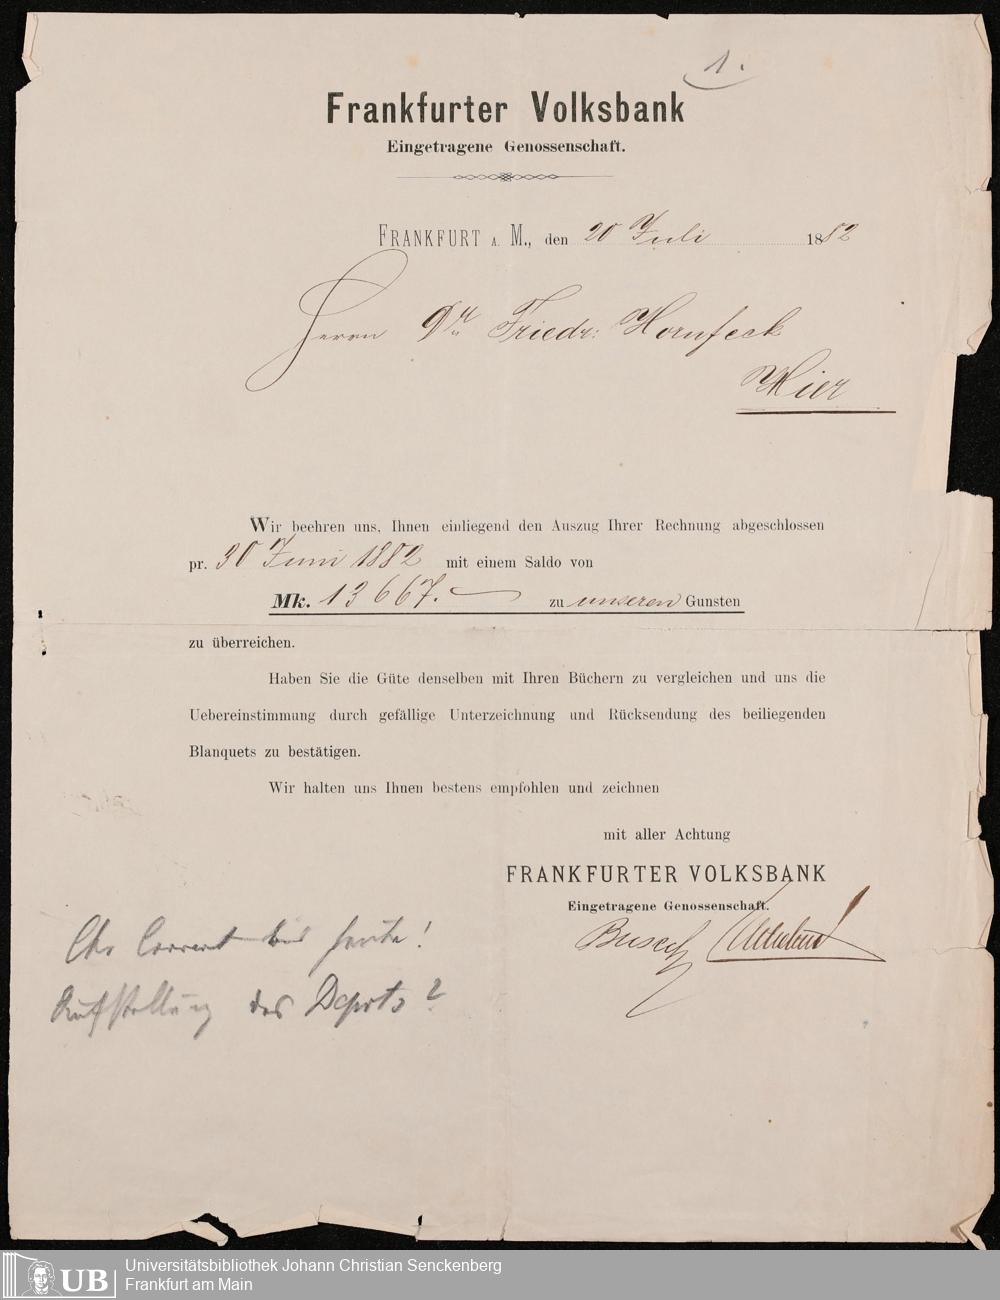 1.
Frankfurter Volksbank
Eingetragene Genossenschaft.
FRANKFURT A. M., den 20 Juli 1882
Herrn Dr Friedr: Hornfeck
Hier
Wir beehren uns, Ihnen einliegend den Auszug Ihrer Rechnung abgeschlossen
pr. 30 Juni 1882 mit einem Saldo von
Mk. 13667.— zu unseren Gunsten
zu überreichen.
Haben Sie die Güte denselben mit Ihren Büchern zu vergleichen und uns die
Uebereinstimmung durch gefällige Unterzeichnung und Rücksendung des beiliegenden
Blanquets zu bestätigen.
Wir halten uns Ihnen bestens empfohlen und zeichnen
mit aller Achtung
FRANKFURTER VOLKSBANK
Eingetragene Genossenschaft.
Busch
Cto Corrent bis heute!
Aufstellung des Depots?
UB
Universitätsbibliothek Johann Christian Senckenberg
Frankfurt am Main